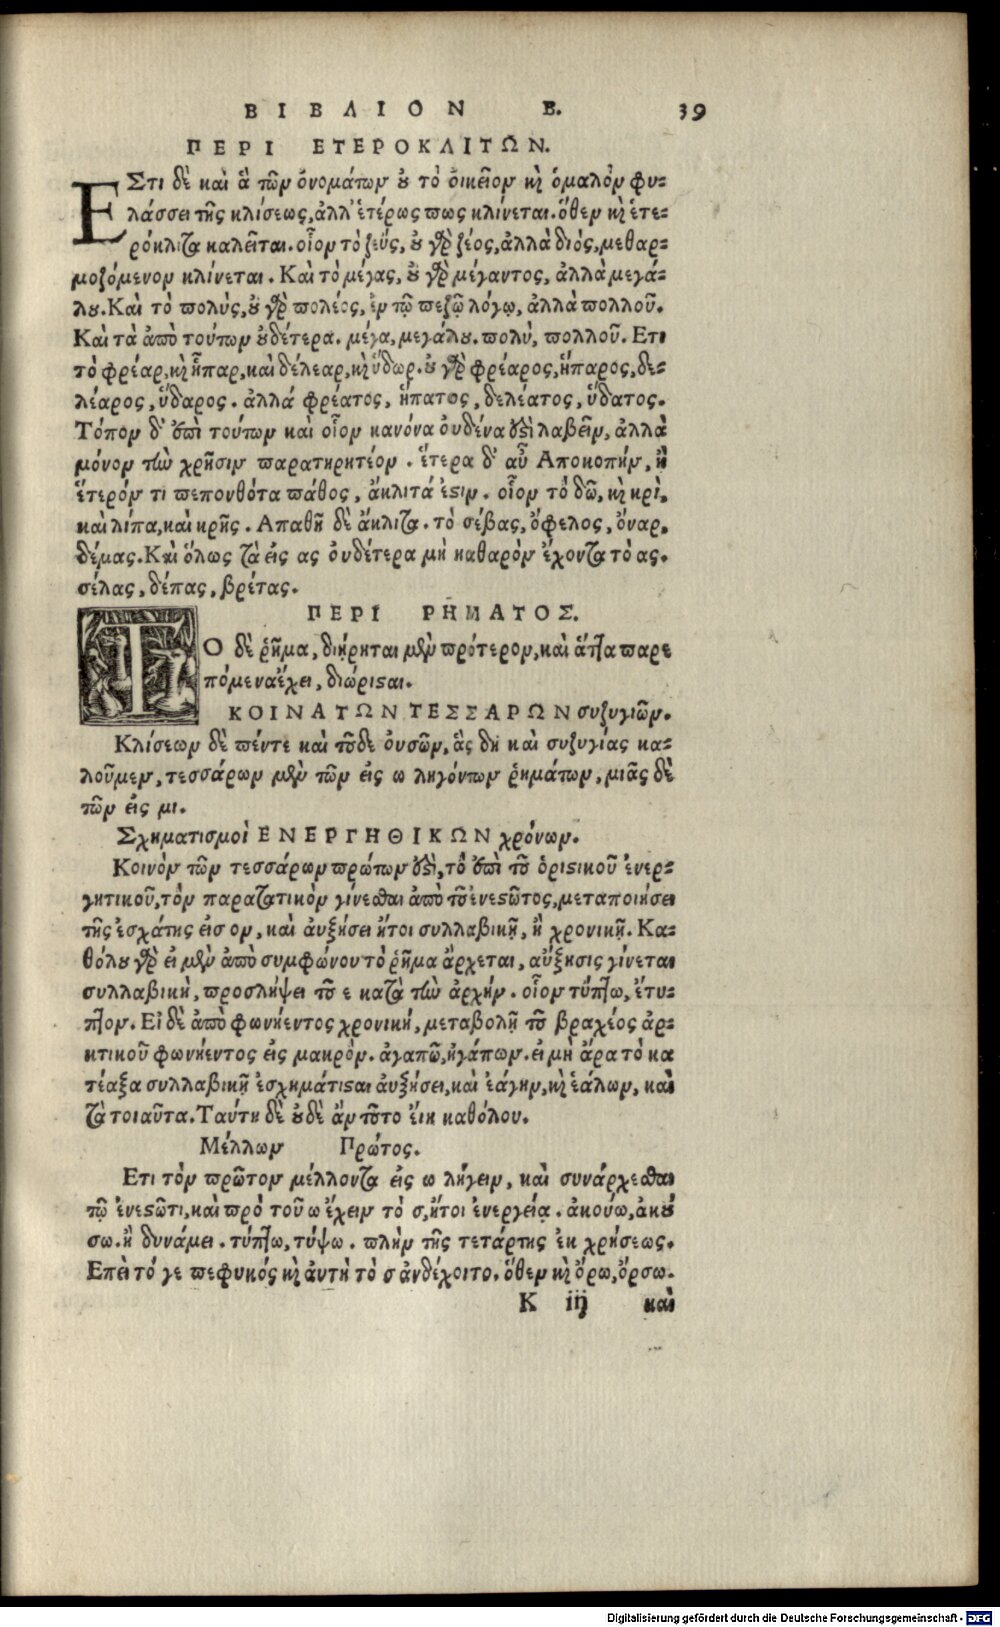 ΒΙΒΛΙΟΝ Β. 39
ΠΕΡΙ ΕΤΕΡΟΚΛΙΤΩΝ.
ΕΣτι δὲ καὶ ἃ τῶν ὀνομάτων οὐ τὸ ὀικεῖον κὶ ὁμαλὸν φυ-
λάσσει τῆς κλίσεως, ἀλλ' ἑτέρως πως κλίνεται. ὅθεν κὶ ἑτε-
ρόκλιτα καλεῖται. οἷον τὸ ζεύς, οὐ γὰρ ζέος, ἀλλὰ διός, μεθαρ-
μοζόμενον κλίνεται. Καὶ τὸ μέγας, οὐ γὰρ μέγαντος, ἀλλὰ μεγά-
λου. Καὶ τὸ πολὺς, οὐ γὰρ πολέος, ἐν τῷ πεζῷ λόγῳ, ἀλλὰ πολλοῦ.
Καὶ τὰ ἀπὸ τούτων οὐδέτερα. μέγα, μεγάλου. πολὺ, πολλοῦ. Ετι
τὸ φρέαρ, κὶ ἧπαρ, καὶ δέλεαρ, κὶ ὕδωρ. οὐ γὰρ φρέαρος, ἥπαρος, δε-
λέαρος, ὕδαρος. ἀλλά φρέατος, ἥπατος, δελέατος, ὕδατος.
Τόπον δ' ἐπὶ τούτων καὶ οἷον κανόνα ὀυδένα ἐστὶ λαβεῖν, ἀλλὰ
μόνον τὴν χρῆσιν παρατηρητέον. ἕτερα δ' αὖ Αποκοπὴν, ἢ
ἕτερόν τι πεπονθότα πάθος, ἄκλιτά ἐστιν. οἷον τὸ δῶ, κὶ κρὶ,
καὶ λίπα, καὶ κρῆς. Απαθῆ δὲ ἄκλιτα. τὸ σέβας, ὄφελος, ὄναρ.
δέμας. Καὶ ὅλως τὰ ἐις ας ὀυδέτερα μὴ καθαρὸν ἔχοντα τὸ ας.
σέλας, δέπας, βρέτας.
ΠΕΡΙ ΡΗΜΑΤΟΣ.
ΤΟ δὲ ῥῆμα, διῄρηται μὲν πρότερον, καὶ ἅττα παρε
πόμενα ἔχει, διώρισται.
ΚΟΙΝΑ ΤΩΝ ΤΕΣΣΑΡΩΝ συζυγιῶν.
Κλίσεων δὲ πέντε καὶ τοῦδε ὀυσῶν, ἃς δὴ καὶ συζυγίας κα-
λοῦμεν, τεσσάρων μὲν τῶν ἐις ω ληγόντων ῥημάτων, μιᾶς δὲ
τῶν ἐις μι.
Σχηματισμοὶ ΕΝΕΡΓΗΘΙΚΩΝ χρόνων.
Κοινὸν τῶν τεσσάρων πρώτων ἐστὶ, τὸ ἐπὶ τοῦ ὁριστικοῦ ἐνερ-
γητικοῦ, τὸν παρατατικὸν γίνεσθαι ἀπὸ τοῦ ἐνεστῶτος, μεταποιήσει
τῆς ἐσχάτης ἐισ ον, καὶ ἀυξήσει ἤτοι συλλαβικῇ, ἢ χρονικῇ. Κα-
θόλου γὰρ ἐι μὲν ἀπὸ συμφώνου τὸ ῥῆμα ἄρχεται, αὔξησις γίνεται
συλλαβικὴ, προσλήψει τοῦ ε κατὰ τὴν ἀρχήν. οἷον τύπτω, ἔτυ-
πτον. Εἰ δὲ ἀπὸ φωνήεντος χρονική, μεταβολῇ τοῦ βραχέος ἀρ-
κτικοῦ φωνήεντος ἐις μακρὸν. ἀγαπῶ, ἠγάπων. ἐι μὴ ἄρα τὸ κα
τέαξα συλλαβικῇ ἐσχημάτισται ἀυξήσει, καὶ ἐάγην, κὶ ἑάλων, καὶ
τὰ τοιαῦτα. Ταύτη δὲ οὐδὲ ἂν τοῦτο ἔιη καθόλου.
Μέλλων Πρώτος.
Ετι τὸν πρῶτον μέλλοντα ἐις ω λήγειν, καὶ συνάρχεσθαι
τῷ ἐνεστῶτι, καὶ πρὸ τοῦ ω ἔχειν τὸ σ, ἤτοι ἐνεργείᾳ. ἀκούω, ἀκού
σω. ἢ δυνάμει. τύπτω, τύψω. πλὴν τῆς τετάρτης ἐκ χρήσεως.
Επεὶ τό γε πεφυκός κὶ ἀυτὴ τὸ σ ἀνδέχοιτο. ὅθεν κὶ ὄρω, ὄρσω.
K iij καὶ
Digitalisierung gefördert durch die Deutsche Forschungsgemeinschaft - DFG